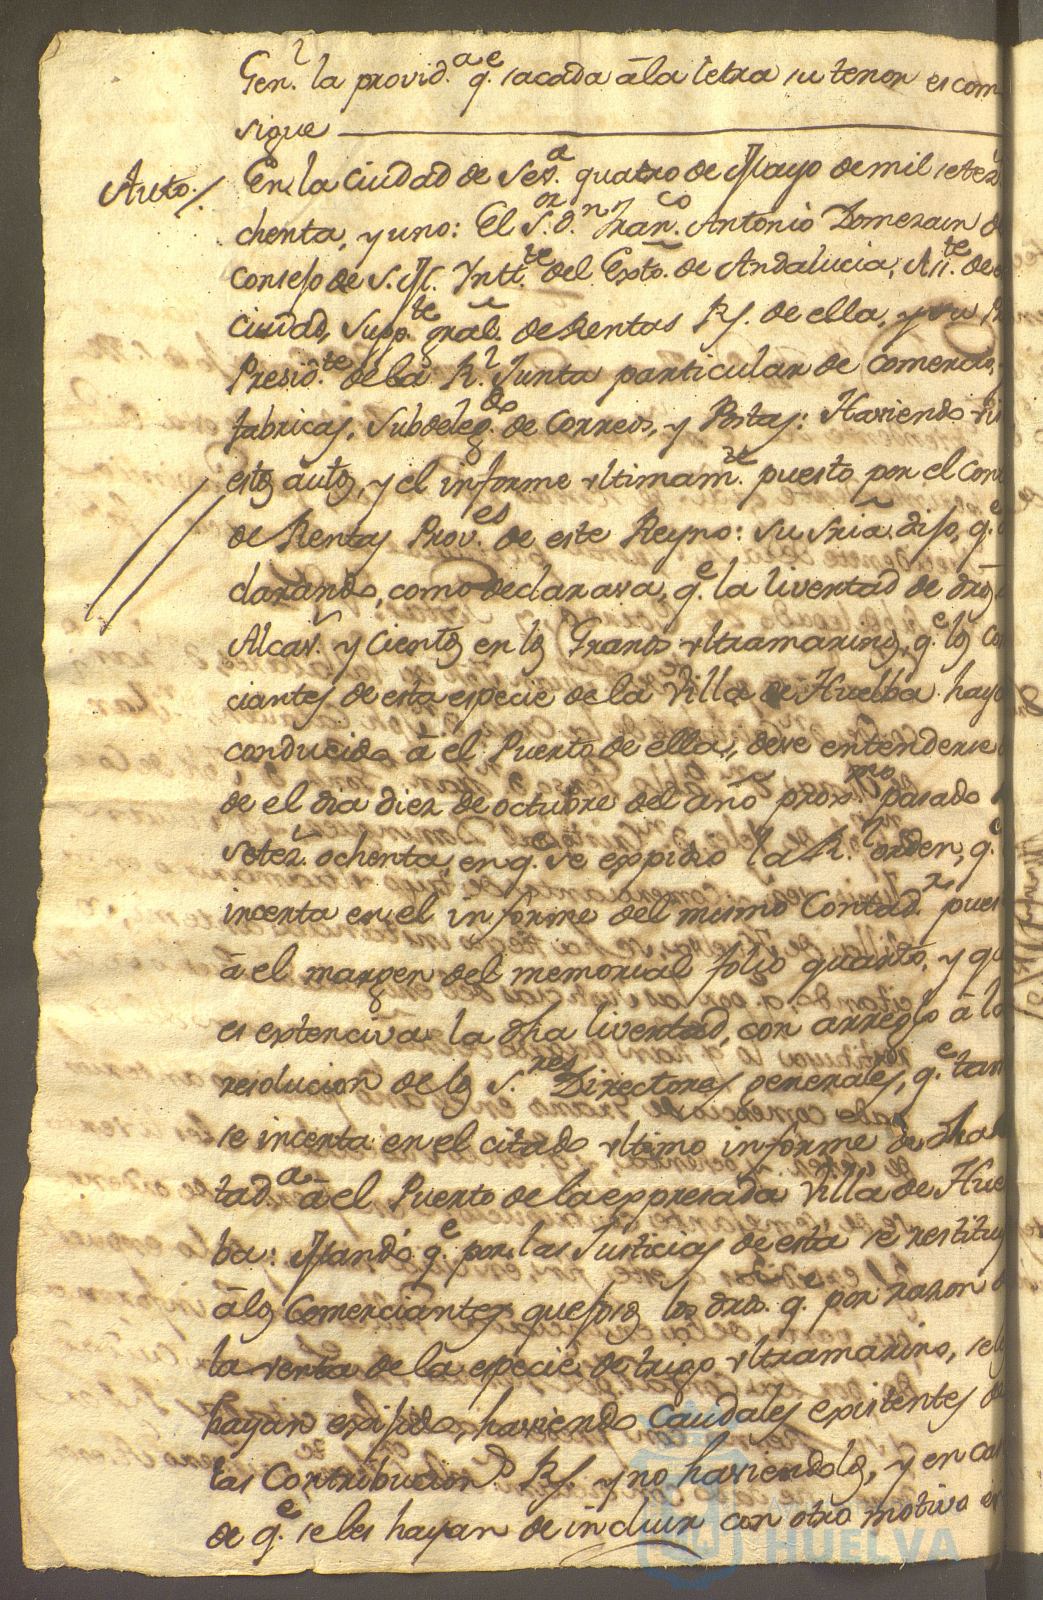 Gen.l la provid.a q.e sacada à la letra su tenor es com
sigue
Auto./ En la Ciudad de Sev.a quatro de Mayo de mil setez.s
chenta, y uno: El S.or d.n Fran.co Antonio Domezain d
Consejo de S. M. Yntt.te del Exto. de Andalucia, Asi.te de e
Ciudad, Supp.te gral. de Rentas R.s de ella, y su R
Presid.te de la R.l Junta particular de comercio,
fabricas, Subdeleg.do de Correos, y Postas: Haviendo vi
estos autos, y el informe ultimam.te puesto por el Con
de Rentas Prov.es de este Reyno: Su Sria. dijo, q.e
clarando, como declarava, q.e la livertad de dros
Alcav.s y Cientos en los Granos ultramarinos, q.e los co
ciantes de esta especie de la Villa de Huelba haya
conducido à el Puerto de ella, deve entenderse
de el dia diez de octubre del año prox.mo pasado
Setez. ochenta, en q.e se expidio la R.l orden, q.e
incerta en el informe del mismo Contad.r pues
à el margen del memorial folio quarto, y qu
es extenciva la dha livertad, con arreglo à la
resolucion de los S.res Directores generales, q.e tam
se incerta en el citado ultimo informe de
tad.a à el Puerto de la expresada Villa de Hue
ba: Mandó q.e por las Justicias de esta se restituy
à los Comerciantes quejosos los dros. q.e por razon
la venta de la especie de trigo ultramarino, se l
hayan exijido, haviendo Caudales existentes de
las Contribucion.s R.s y no haviendolos, y en cas
de q.e se les hayan de incluir con otro motivo en
HUELVA